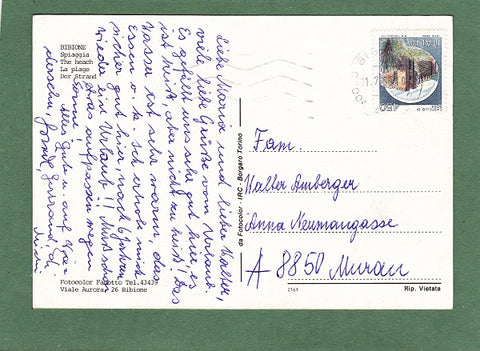 BIBIONE
Spiaggia
The beach
La plage
Der Strand
Liebe Maria und lieber Walter,
viele liebe Grüße vom Urlaub.
Es gefällt uns sehr gut hier, es
ist heiß, aber nicht zu heiß! Das
Wasser ist sehr warm, das
Essen o.k. Ich erhole mich
sicher gut hier, nach 6 Jahren
wieder ein Urlaub!! Muß schon
etwas aufpassen wegen
Sonne!
Alles Gute u. auf Wie-
dersehn,
Fotocolor Farotto Tel.43439
Viale Aurora, 26 Bibione
da Fotocolor - IRC - Borgaro Torino
ITALIA
450
Fam.
Walter Amberger
Anna Neumangasse
A 8850 Murau
2161
Rip. Vietata